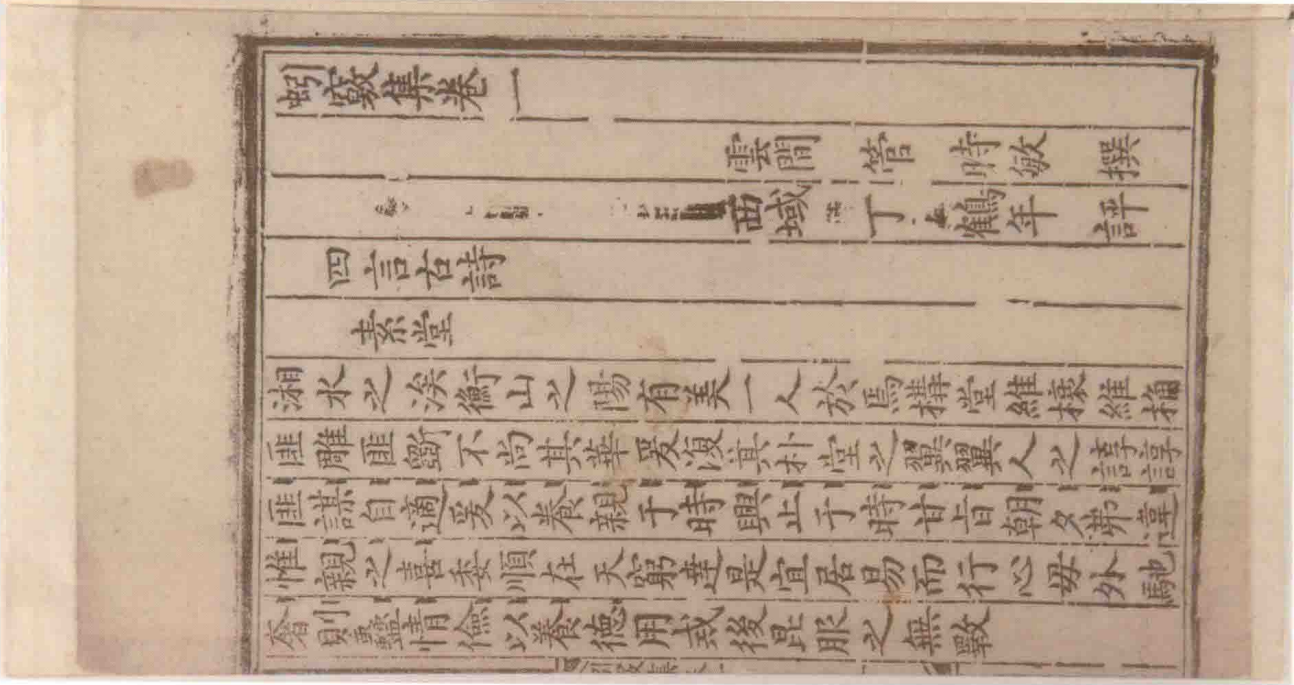 蚓竅集卷一
雲間 管 時敏 撰
西域 丁 鶴年 評
四言古詩
素堂
湘水之涘衡山之陽有美一人於焉構堂維榱維桷
匪雕匪斵不尚其華爰復其朴堂之翼翼人之諄諄
匪謀自適爰以養親于時興止于時甘旨朝夕弗違
惟親之喜委順在天窮達是宜居易而行心毋外馳
奢則蠹情儉以養德用戒後昆服之無斁